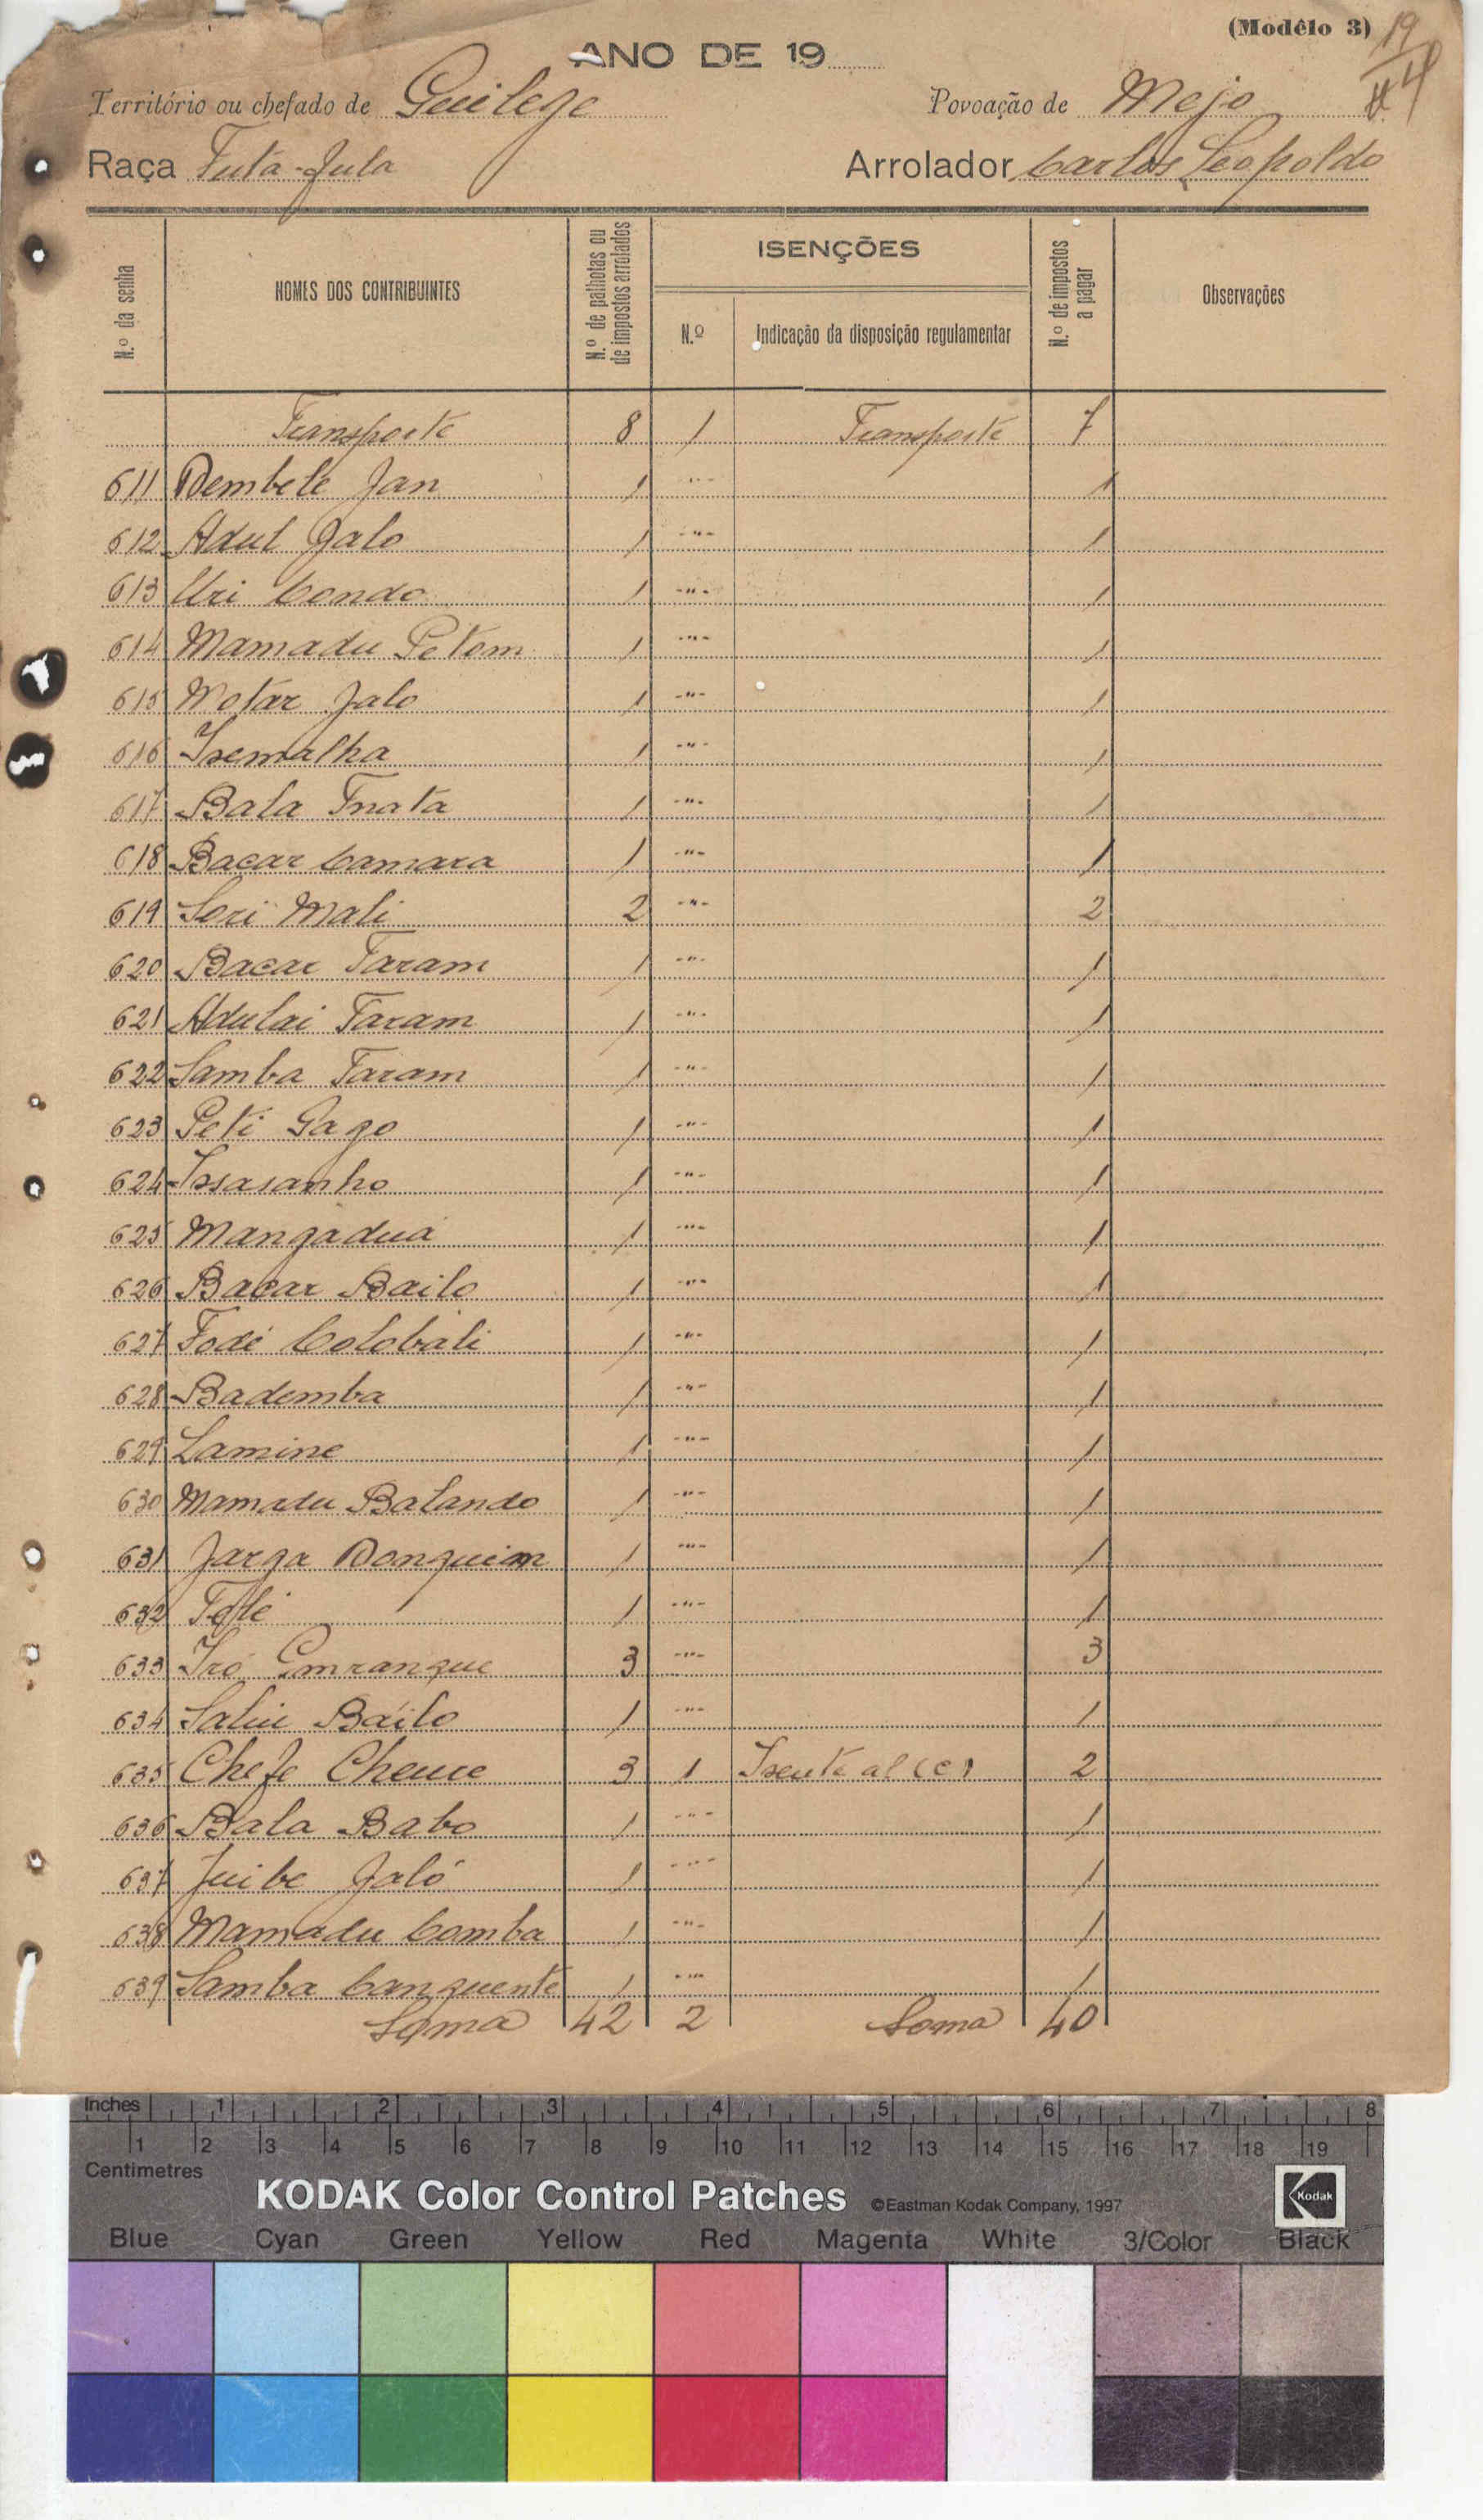 (Modêlo 3)
19
4
ANO DE 19
Território ou chefado de Guilege Povoação de Mejo
Raça Futa-Fula Arrolador Carlos Leopoldo
N.º da senha
NOMES DOS CONTRIBUINTES
N.º de palhotas ou de impostos arrolados
ISENÇÕES
N.º
Indicação da disposição regulamentar
N.º de impostos a pagar
Observações
Transporte 8 1 Transporte 7
611 Dembele Jan 1 -"- 1
612 Adul Jalo 1 -"- 1
613 Uri Condo 1 -"- 1
614 Mamadu Petom 1 -"- 1
615 Motar Jalo 1 -"- 1
616 Isemalha 1 -"- 1
617 Bala Tnata 1 -"- 1
618 Bacar Camara 1 -"- 1
619 Sori Mali 2 -"- 2
620 Bacar Taram 1 -"- 1
621 Adulai Taram 1 -"- 1
622 Samba Taram 1 -"- 1
623 Peti Gago 1 -"- 1
624 Issasanho 1 -"- 1
625 Mangadua 1 -"- 1
626 Bacar Bailo 1 -"- 1
627 Fodé Colobali 1 -"- 1
628 Bademba 1 -"- 1
629 Lamine 1 -"- 1
630 Mamadu Balando 1 -"- 1
631 Jarga Donguim 1 -"- 1
632 1 -"- 1
633 Iró Emrangue 3 -"- 3
634 Saliu Báilo 1 -"- 1
635 Chefe Cheuce 3 1 Isento al (c) 2
636 Bala Babo 1 -"- 1
637 Juibe Jaló 1 -"- 1
638 Mamadu Comba 1 -"- 1
639 Samba Canquente 1 -"- 1
Soma 42 2 Soma 40
Inches 1 2 3 4 5 6 7 8
1 2 3 4 5 6 7 8 9 10 11 12 13 14 15 16 17 18 19
Centimetres
KODAK Color Control Patches ©Eastman Kodak Company, 1997 Kodak
Blue Cyan Green Yellow Red Magenta White 3/Color Black